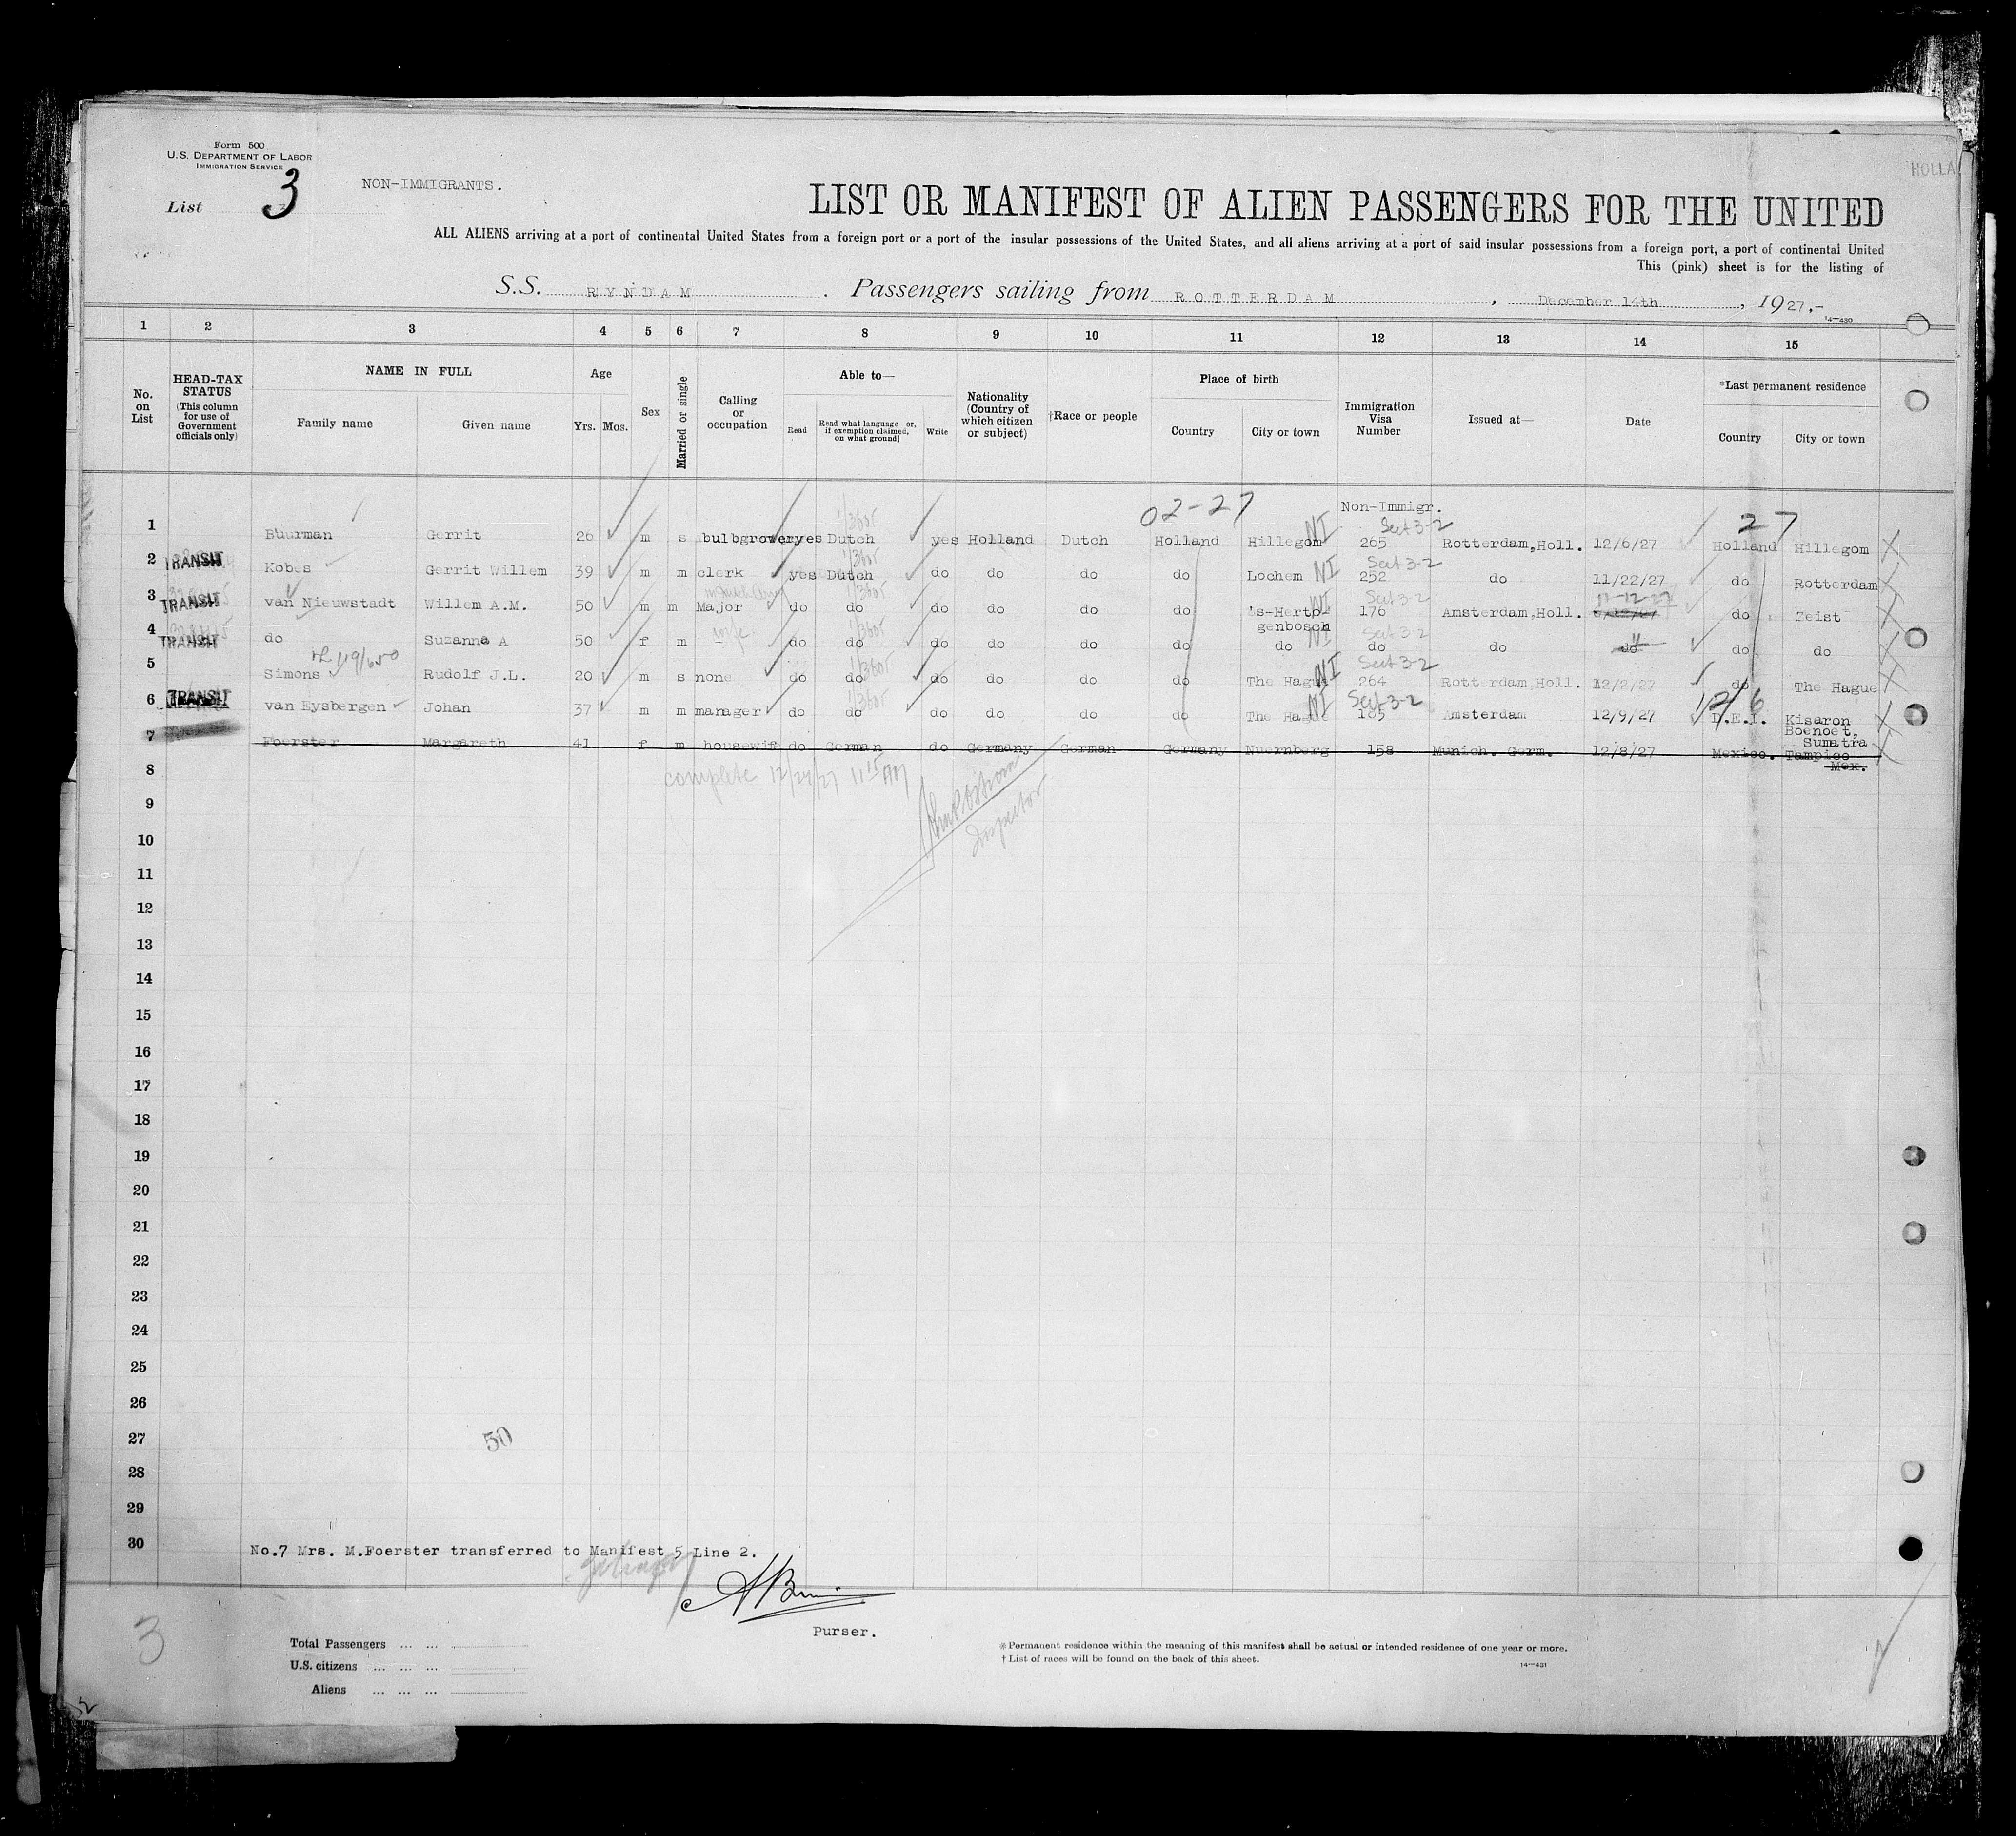 Form 500
U.S. DEPARTMENT OF LABOR
IMMIGRATION SERVICE
HOLLA
List 3
NON-IMMIGRANTS.
LIST OR MANIFEST OF ALIEN PASSENGERS FOR THE UNITED
ALL ALIENS arriving at a port of continental United States from a foreign port or a port of the insular possessions of the United States, and all aliens arriving at a port of said insular possessions from a foreign port, a port of continental United
This (pink) sheet is for the listing of
S.S. RYNDAM. Passengers sailing from ROTTERDAM, December 14th, 1927.-
14-430
1 2 3 4 5 6 7 8 9 10 11 12 13 14 15
No. on List
HEAD-TAX STATUS (This column for use of Government officials only)
NAME IN FULL
Family name Given name
Age
Yrs. Mos.
Sex
Married or single
Calling or occupation
Able to—
Read
Read what language or, if exemption claimed, on what ground]
Write
Nationality (Country of which citizen or subject)
†Race or people
Place of birth
Country City or town
Immigration Visa Number
Issued at—
Date
*Last permanent residence
Country City or town
02-27 Non-Immigr. 27
1 Buurman Gerrit 26 m s bulbgrower yes Dutch yes Holland Dutch Holland Hillegom NI Sect 3-2 265 Rotterdam,Holl. 12/6/27 Holland Hillegom
2 TRANSIT Kobes Gerrit Willem 39 m m clerk yes Dutch do do do do Lochem NI Sect 3-2 252 do 11/22/27 do Rotterdam
3 TRANSIT van Nieuwstadt Willem A.M. 50 m m Major do do do do do do 's-Herto-genbosch NI Sect 3-2 176 Amsterdam,Holl. 12-12-27 do Zeist
4 TRANSIT do Suzanna A 50 f m wife do do do do do do do NI Sect 3-2 do do do do do
5 Simons Rudolf J.L. 20 m s none do do do do do do The Hague NI Sect 3-2 264 Rotterdam,Holl. 12/2/27 do The Hague
6 TRANSIT van Eysbergen Johan 37 m m manager do do do do do do The Hague NI Sect 3-2 185 Amsterdam 12/9/27 D.E.I. Kisaron Boenoet, Sumatra
7 Foerster Margareth 41 f m housewife do German do Germany German Germany Nuernberg 158 Munich. Germ. 12/8/27 Mexico. Tampico Mex.
complete 12/24/27
Inspector
8
9
10
11
12
13
14
15
16
17
18
19
20
21
22
23
24
25
26
27 50
28
29
30
No.7 Mrs. M.Foerster transferred to Manifest 5 Line 2.
Purser.
3
Total Passengers ... ...
U.S. citizens ... ... ...
Aliens ... ... ...
* Permanent residence within the meaning of this manifest shall be actual or intended residence of one year or more.
† List of races will be found on the back of this sheet.
14-431